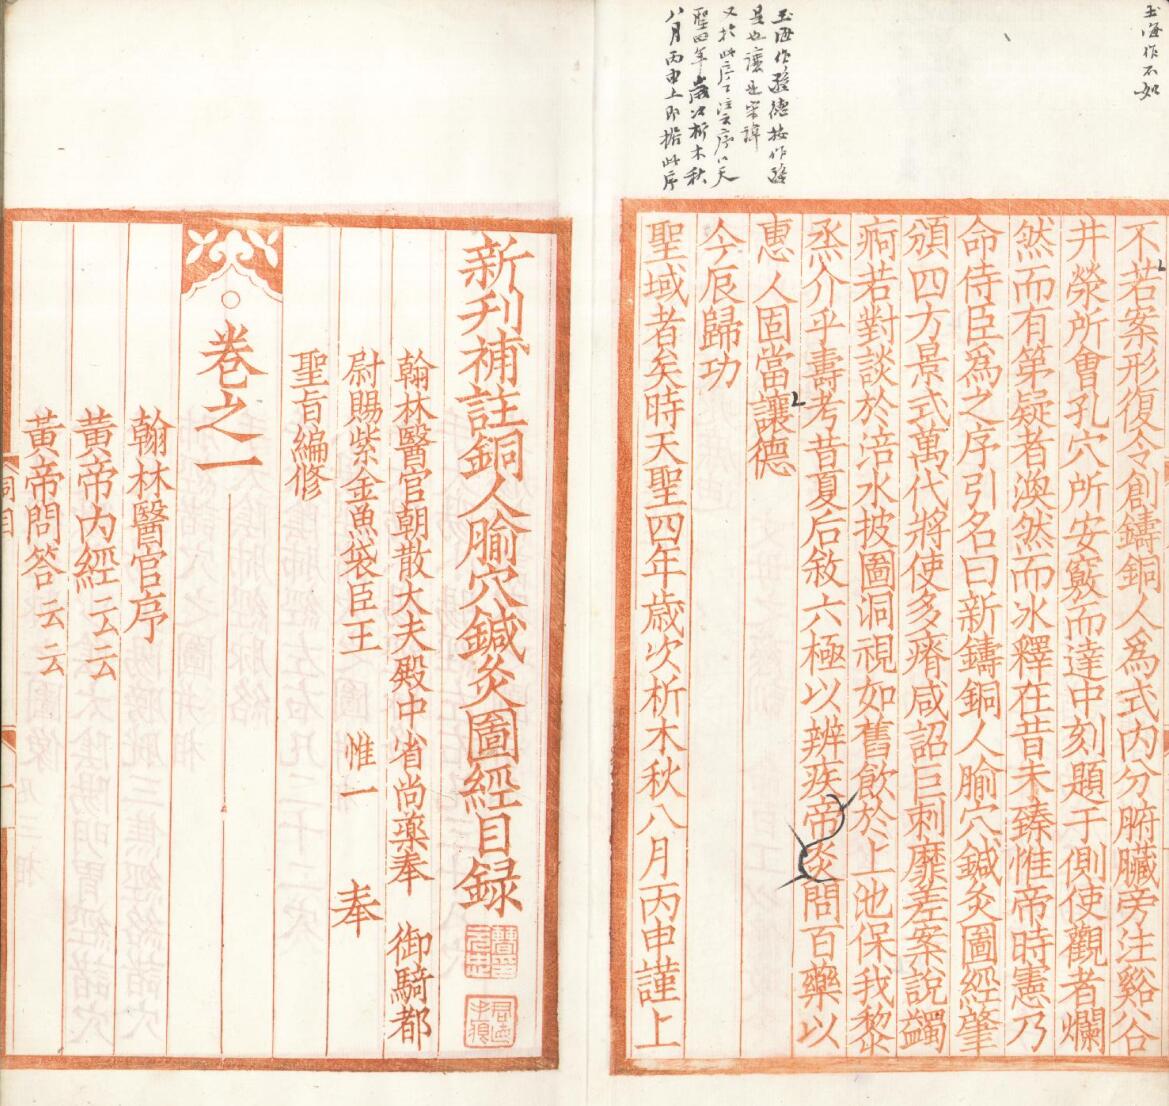 玉海作不如
不若案形復令創鑄銅人為式內分腑臟旁注谿谷
井滎所會孔穴所安竅而達中刻題于側使觀者爛
然而有第疑者渙然而冰釋在昔未臻惟帝時憲乃
命侍臣為之序引名曰新鑄銅人腧穴鍼灸圖經肇
頒四方景式萬代將使多瘠咸詔巨刺靡差案說蠲
痾若對談於涪水披圖洞視如舊飲於上池保我黎
烝介乎壽考昔夏后敘六極以辨疾帝炎問百藥以
惠人固當讓德
今辰歸功
聖域者矣時天聖四年歲次析木秋八月丙申謹上
玉海作
是也讓是宋諱
又於此序下注云序以天
聖四年歲次析木秋
八月丙申上即指此序
新刊補註銅人腧穴鍼灸圖經目録
翰林醫官朝散大夫殿中省尚藥奉 御騎都
尉賜紫金魚袋臣王 惟一 奉
聖旨編修
卷之一
翰林醫官序
黃帝內經云云
黃帝問答云云